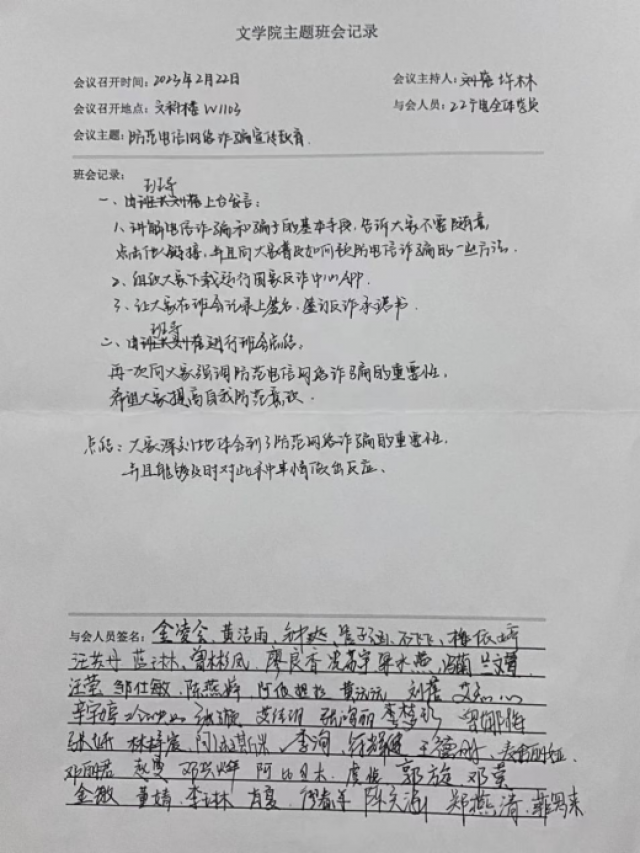 文学院主题班会记录
会议召开时间：2023年2月22日 会议主持人：刘蓓 许林
会议召开地点：文科楼W1103 与会人员：22个电全体党员
会议主题：防范电信网络诈骗宣传教育.
班会记录：
班导
一、由班长刘蓓上台发言：
1、讲解电信诈骗和骗子的基本手段，告诉大家不要随意
点击他人链接，并且向大家普及如何预防电信诈骗的一些方法.
2、组织大家下载运行国家反诈中心APP.
3、让大家在班会记录上签名，签订反诈承诺书.
班导
二、由班长刘蓓进行班会总结，
再一次向大家强调防范电信网络诈骗的重要性，
希望大家提高自我防范意识.
总结：大家深刻地体会到了防范网络诈骗的重要性.
并且能够及时对此种事情做出反应、
与会人员签名：金凌会、黄洁雨、梅依婷
汪芸丹 蓝林 曾彬凤 廖良香
汪莹 邹仕敏 陈燕辉 刘蓓
张璇 张海丽 李梦珍
张妍 林梓宸 李洵 王德彬
邓丽君 赵曼 邓兴烨 阿比旦木 虞悦 郭旋 邓英
金敏 董婧 李琳 肖夏 陈文涵 郑燕清